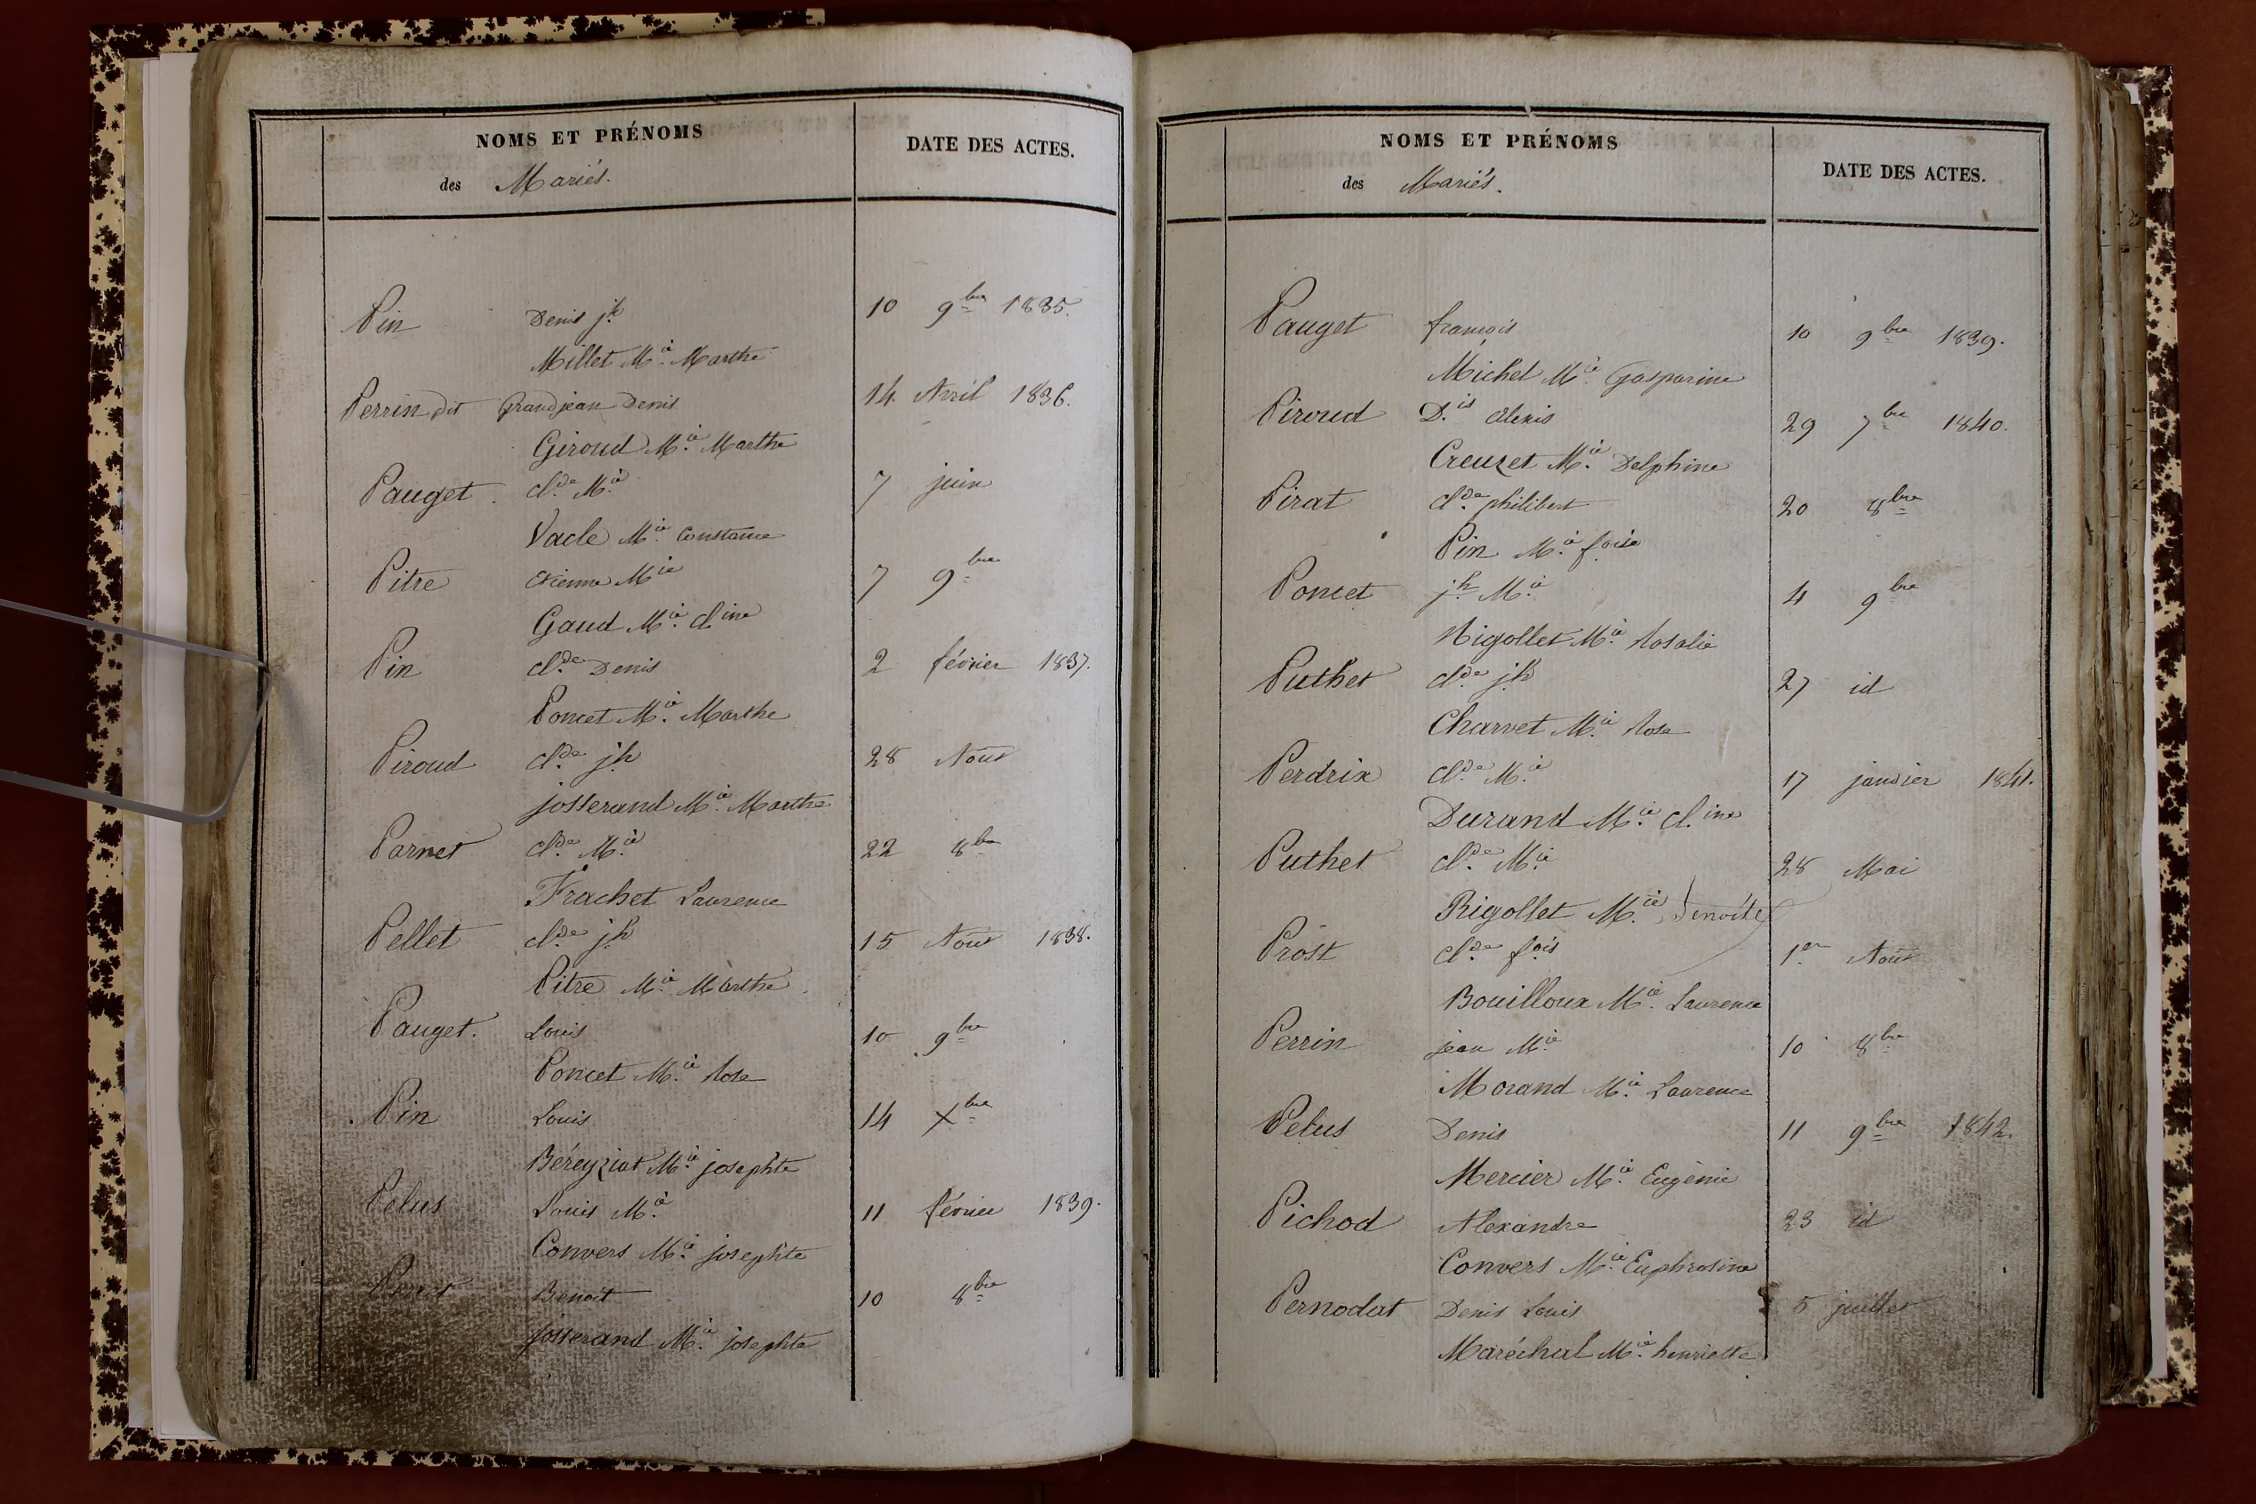 NOMS ET PRÉNOMS
des Mariés.
DATE DES ACTES.
Pin Denis jh 10 9bre 1835.
Millet Mie Marthe
Perrin dit Grandjean Denis 14 Avril 1836.
Giroud Mie Marthe
Pauget Cl.de Mie 7 juin
Vacle Mie Constance
Pitre Etienne Mie 7 9bre
Gaud Mie Cl.ine
Pin Cl.de Denis 2 février 1837.
Poncet Mie Marthe
Piroud Cl.de jh 28 Aout
josserand Mie Marthe
Parnet Cl.de Mie 22 8bre
Frachet Laurence
Pellet Cl.de jh 15 Aout 1838.
Pitre Mie Marthe
Pauget. Louis 10 9bre
Poncet Mie Rose
Pin Louis 14 Xbre
Béreyziat Mie josephte
Pelus Louis Mie 11 février 1839.
Convers Mie josephte
Benoit 10 8bre
josserand Mie josephte
NOMS ET PRÉNOMS
des Mariés.
DATE DES ACTES.
Pauget françois 10 9bre 1839.
Michel Mie Gasparine
Piroud D.is Alexis 29 7bre 1840.
Creuzet Mie Delphine
Pirat Cl.de philibert 20 8bre
Pin Mie foise
Poncet jh Mie 4 9bre
Rigollet Mie Rosalie
Puthet Cl.de jh 27 id
Charvet Mie Rose
Perdrix Cl.de Mie 17 janvier 1841.
Durand Mie Cl.ine
Puthet Cl.de Mie 28 Mai
Rigollet Mie Benoite
Prost Cl.de fois 1er Aout
Bouilloux Mie Laurence
Perrin jean Mie 10 8bre
Morand Mie Laurence
Pelus Denis 11 9bre 1842.
Mercier Mie Eugènie
Pichod Alexandre 23 id
Convers Mie Euphrosine
Pernodat Denis Louis 5 juillet
Maréchal Mie henriette